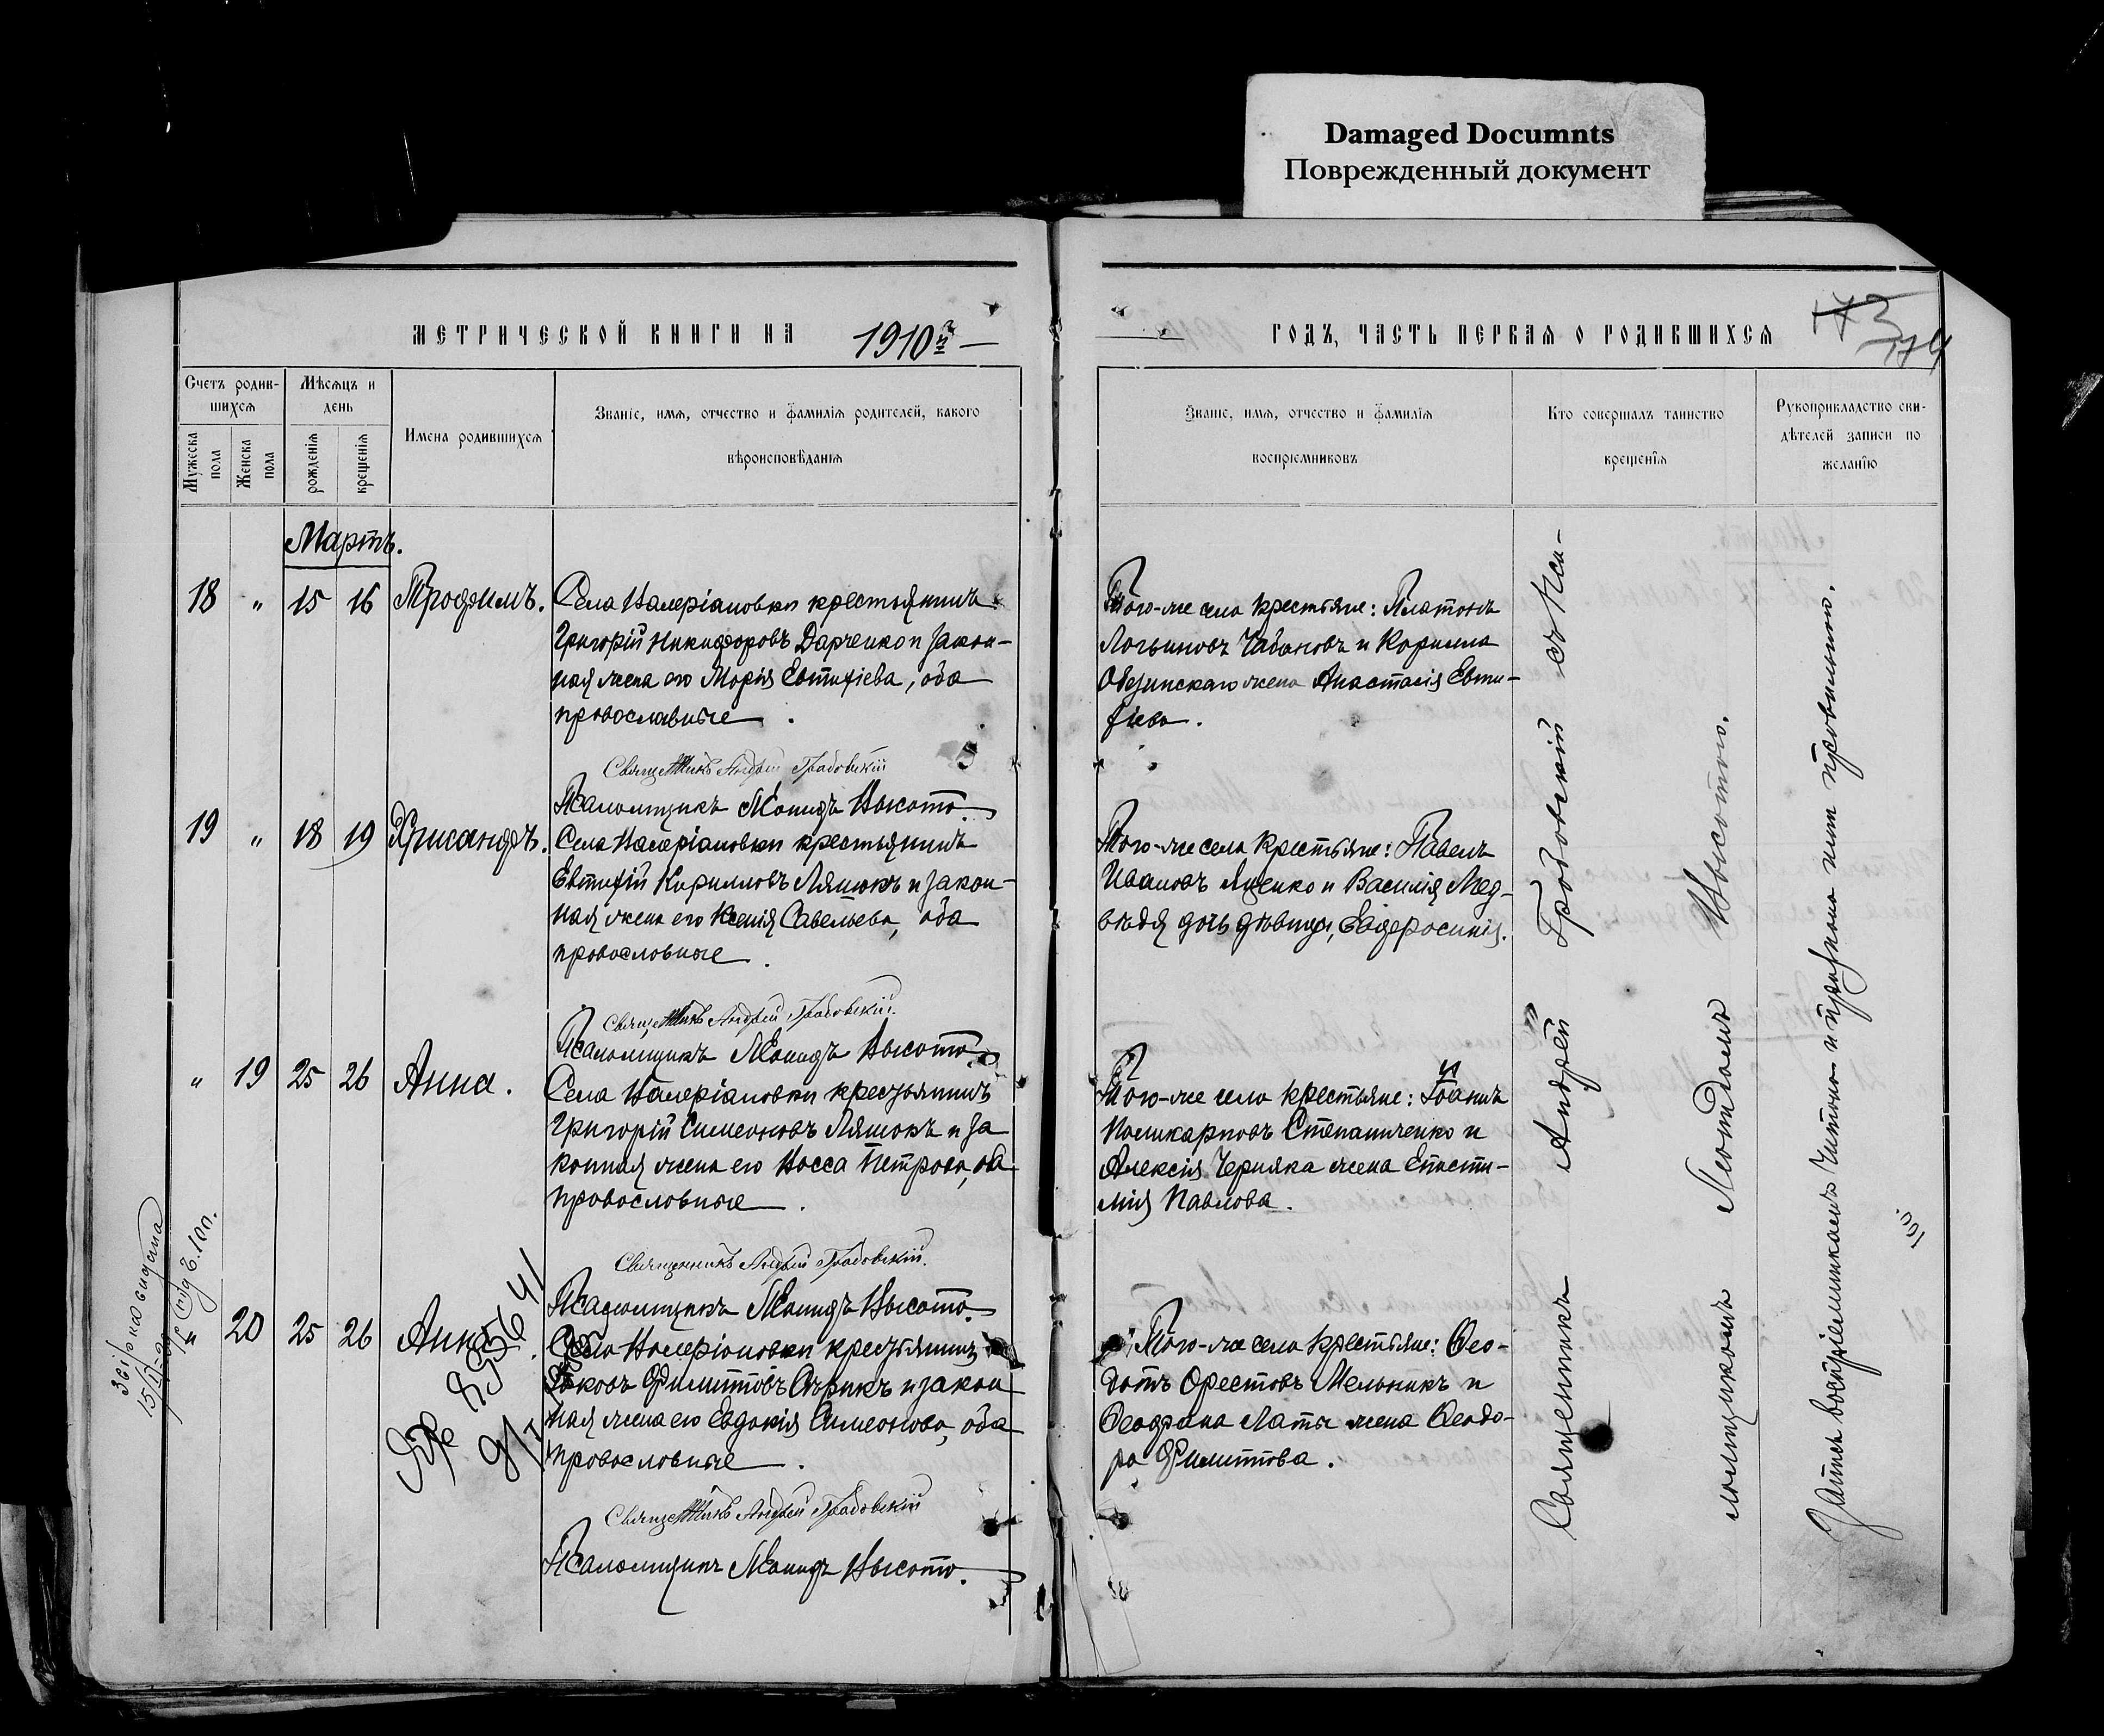 Damaged Documnts
Поврежденный документ
МЕТРИЧЕСКОЙ КНИГИ НА 1910й
ГОДЪ, ЧАСТЬ ПЕРВАЯ О РОДИВШИХСЯ
173
174
Счетъ родив-
шихся
Мужеска пола
Женска пола
Мѣсяцъ и
день
рожденія
крещенія
Имена родившихся
Званіе, имя, отчество и фамилія родителей, какого
вѣроисповѣданія
Званіе, имя, отчество и фамилія
воспріемниковъ
Кто совершалъ таинство
крещенія
Рукоприкладство сви-
дѣтелей записи по
желанію
Мартъ.
18 " 15 16 Трофимъ.
Села Валеріановки крестьянинъ
Григорій Никифоровъ Дарченко и закон-
ная жена его Марія Евтихіева, оба
православные.
Священникъ Андрей Градовскій
Псаломщикъ Леонидъ Высота.
Того-же села крестьяне: Платонъ
Логвиновъ Чабановъ и Корнила
жена Анастасія Евти-
хіева.
19 " 18 19 Хрисанфъ.
Села Валеріановки крестьянинъ
Евтихій Кирилловъ Ляшокъ и закон-
ная жена его Ксенія Савельева, оба
православные.
Священникъ Андрей Градовскій.
Псаломщикъ Леонидъ Высота.
Того-же села крестьяне: Павелъ
Ивановъ Яценко и Василія Мед-
вѣдя дочь дѣвица, Евфросинія.
" 19 25 26 Анна.
Села Валеріановки крестьянинъ
Григорій Симеоновъ Ляшокъ и за
конная жена его Васса Петрова, оба
православные.
Священникъ Андрей Градовскій.
Псаломщикъ Леонидъ Высота.
Того-же села крестьяне: Іоаннъ
Поликарповъ Степаниченко и
Алексія Черняка жена Еписти-
мія Павлова.
" 20 25 26 Анна.
Села Валеріановки крестьянинъ
Яковъ Филипповъ Сѣрикъ и закон
ная жена его Евдокія Симеонова, оба
православные.
Священникъ Андрей Градовскій
Псаломщикъ Леонидъ Высота.
Того-же села крестьяне: Ѳео-
дотъ Орестовъ Мельникъ и
жена Ѳеодо-
ра Филиппова.
Священникъ Андрей Градовскій съ Пса-
ломщикомъ Леонидомъ Высотою.